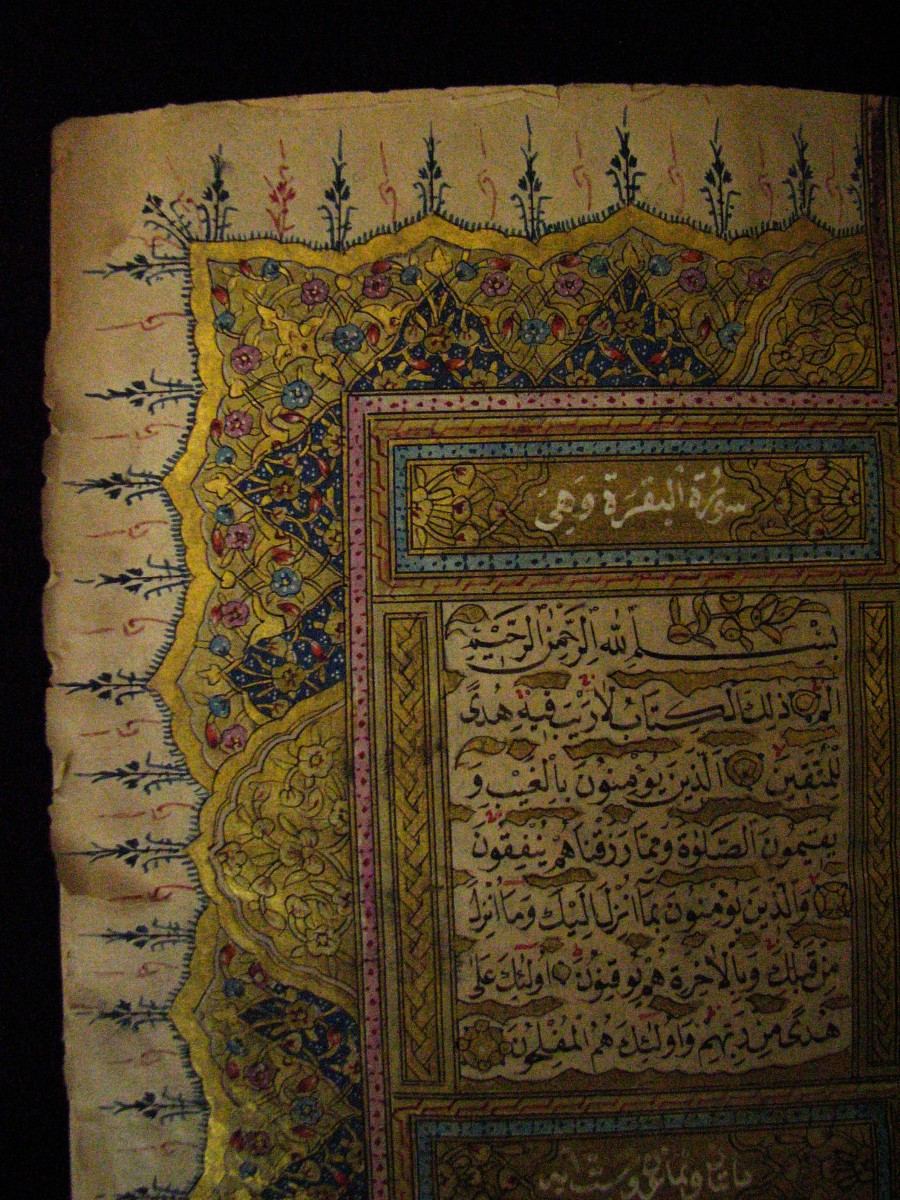 سُورَةُ الْبَقَرَةِ وَهِيَ
بِسْمِ اللهِ الرَّحْمٰنِ الرَّحِيْمِ
الٓمٓ ذٰلِكَ الْكِتَابُ لَا رَيْبَ فِيهِ هُدًى
لِلْمُتَّقِينَ الَّذِينَ يُؤْمِنُونَ بِالْغَيْبِ وَ
يُقِيمُونَ الصَّلٰوةَ وَمِمَّا رَزَقْنَاهُمْ يُنْفِقُونَ
وَالَّذِينَ يُؤْمِنُونَ بِمَا اُنْزِلَ اِلَيْكَ وَمَا اُنْزِلَ
مِنْ قَبْلِكَ وَبِالْاٰخِرَةِ هُمْ يُوقِنُونَ اُولٰئِكَ عَلٰى
هُدًى مِنْ رَبِّهِمْ وَاُولٰئِكَ هُمُ الْمُفْلِحُونَ